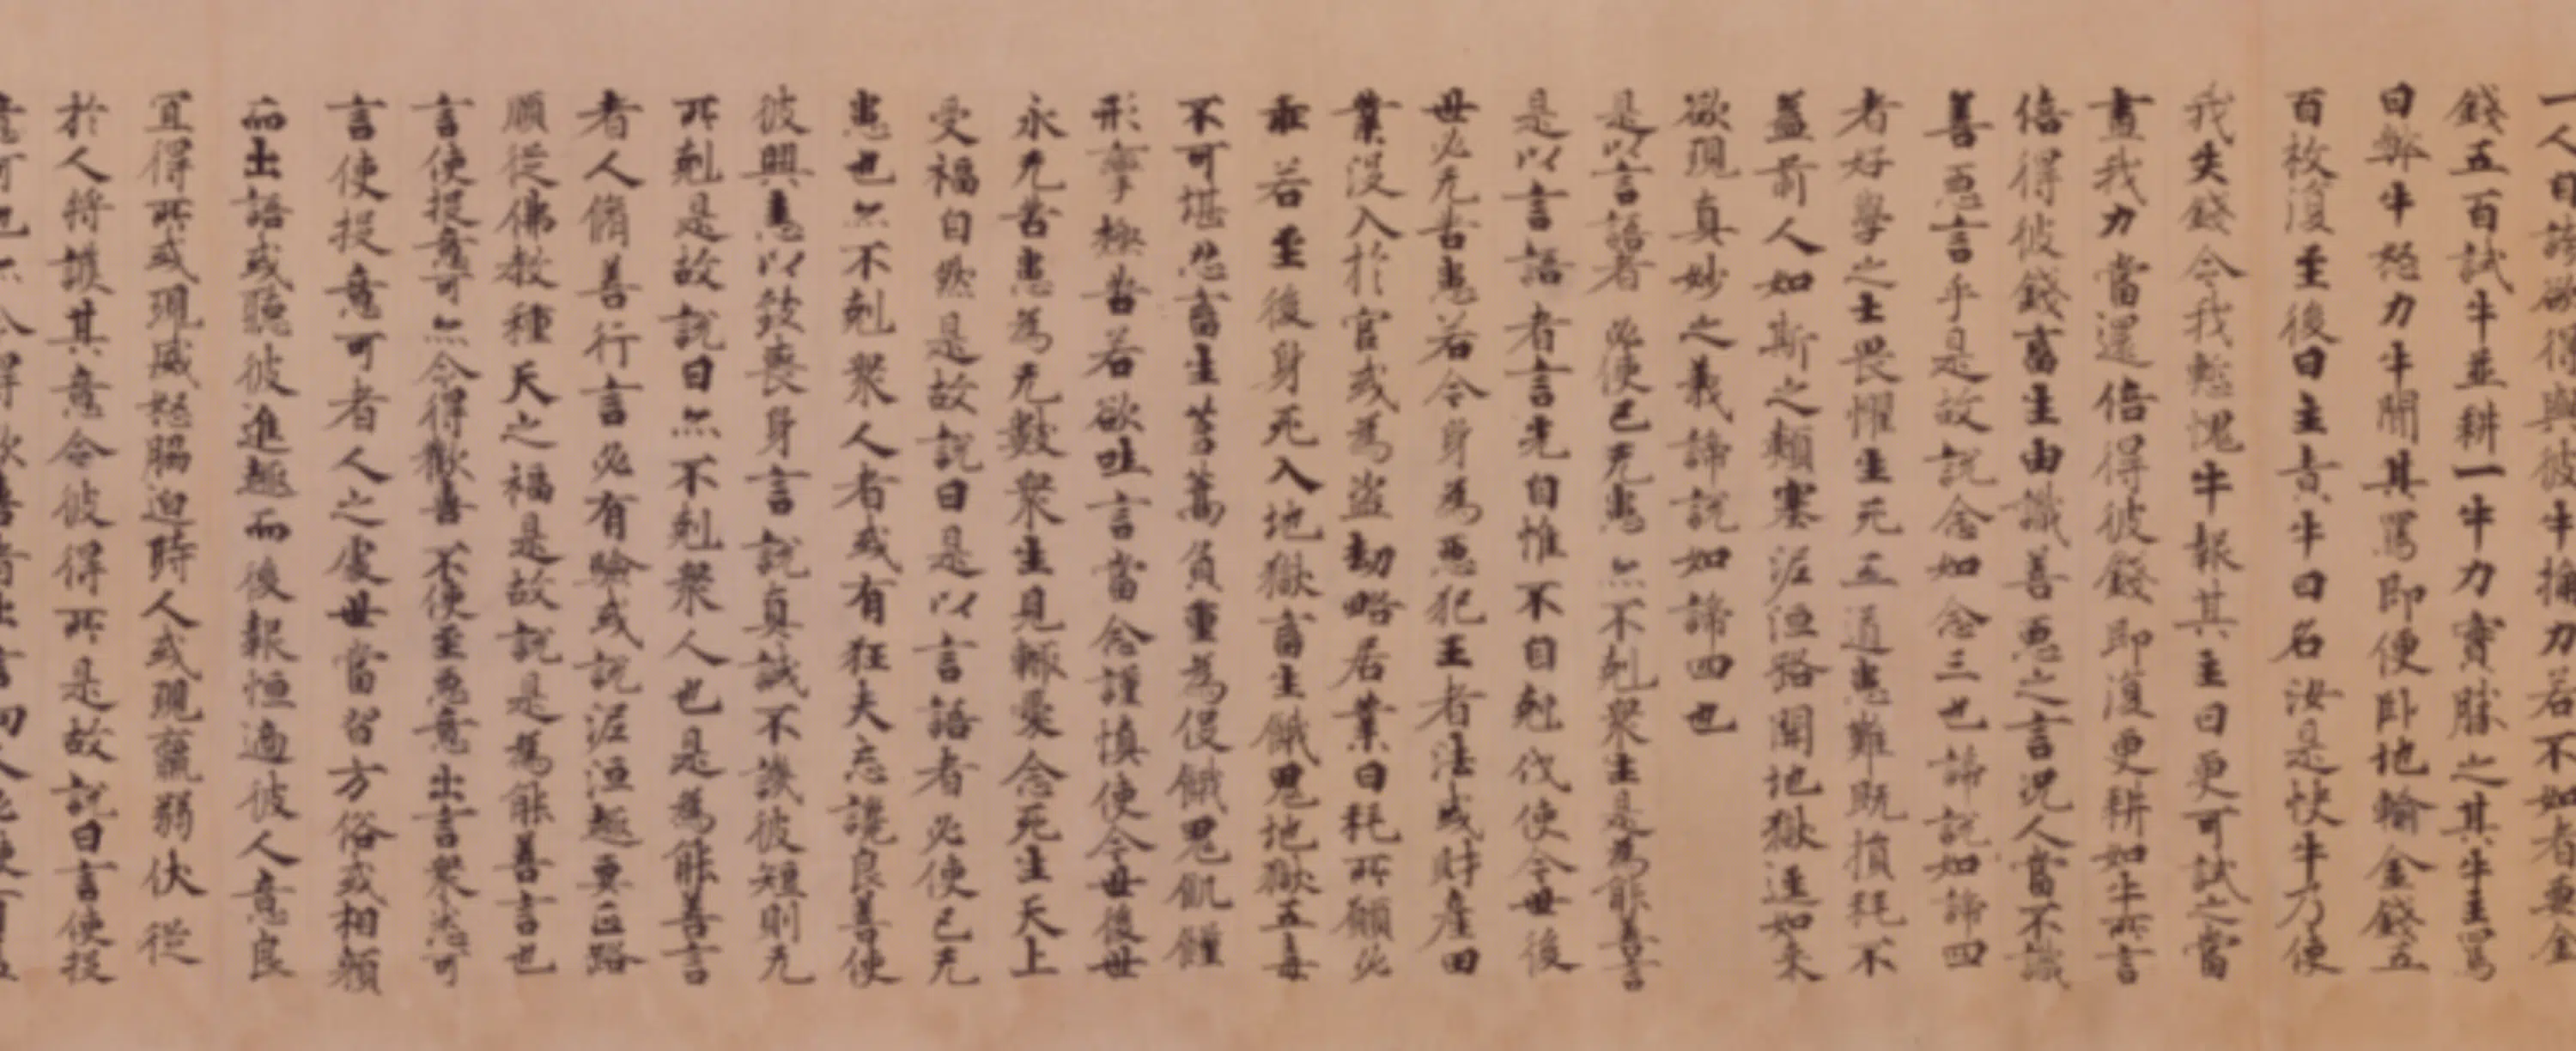 一人曰請欲得與彼牛捔力若不如者要金
錢五百試牛並耕一牛力實勝之其牛主罵
曰弊牛極力牛聞其罵即便卧地輸金錢五
百枚復至後日主責牛曰名汝是快牛乃便
我失錢令我慙愧牛報其主曰更可試之當
盡我力當還倍得彼錢即復更耕如牛所言
倍得彼錢畜生由識善惡之言況人當不識
善惡言乎是故說念如念三也諦說如諦四
者好學之士畏懼生死五道患難既損耗不
益前人如斯之類塞泥洹路開地獄逕如來
欲現真妙之義諦說如諦四也
是以言語者 必使己无患 无不剋眾生是為能善言
是以言語者言先自惟不自剋伐使今世後
世必无苦患若今身為惡犯王者法或財產田
業沒入於官或為盜劫略居業日耗所願必
乖若至後身死入地獄畜生餓鬼地獄五毒
不可堪忍畜生荅蒿負重為伇餓鬼飢饉
形
極苦若欲吐言當念謹慎使今世後世
永无苦患為无數眾生見輒愛念死生天上
受福自然是故說曰是以言語者必使己无
患也无不剋眾人者或有狂夫忘讒良善使
彼興恚以致喪身言說真誠不譏彼短則无
所剋是故說曰无不剋眾人也是為能善言
者人脩善行言必有驗或說泥洹趣要正路
順從佛教種天之福是故說是為能善言也
言使投意可 无令得歡喜 不使至惡意 出言眾悉可
言使投意可者人之處世當習方俗或相顏
而出語或聽彼進趣而後報恒適彼人意良
宜得所或現威怒脇迫時人或現羸弱伏從
於人將護其意令彼得所是故說曰言使投
意可也无令得歡喜者出言